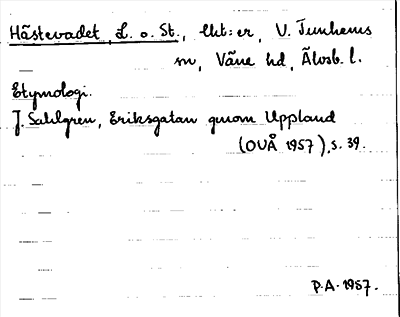 Hästevadet, L. o. St., lht:er, V. Tunhems
sn, Väne hd, Älvsb. l.
Etymologi.
J. Sahlgren, Eriksgatan genom Uppland
(OUÅ 1957), s. 39.
P.A. 1957.